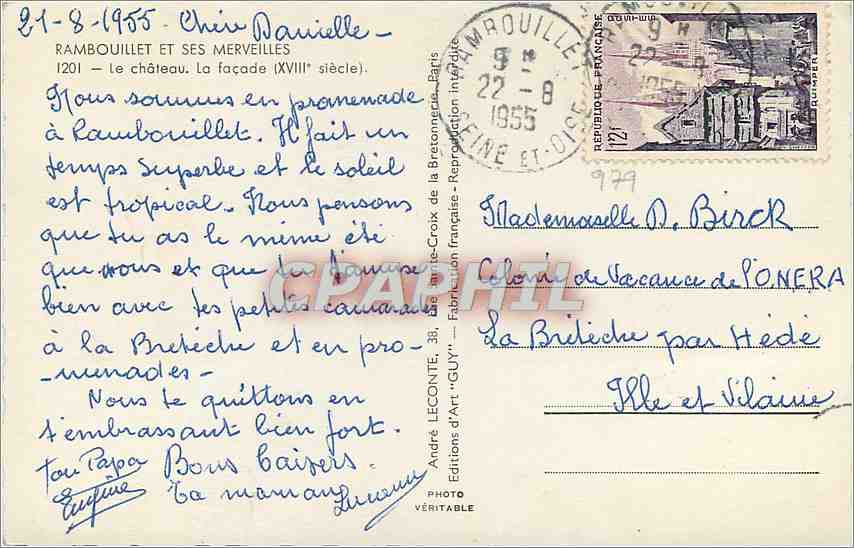 21-8-1955. Chère Danielle -
RAMBOUILLET ET SES MERVEILLES
1201 — Le château. La façade (XVIIIe siècle).
Nous sommes en promenade
à Rambouillet. Il fait un
temps superbe et le soleil
est tropical. Nous pensons
que tu as le même été
que nous et que tu t'amuses
bien avec tes petites camarades
à la Bretèche et en pro-
-menades -
Nous te quittons en
t'embrassant bien fort.
ton Papa Bons baisers.
Eugène Ta maman
Lucienne
André LECONTE, 38, Rue Sainte-Croix de la Bretonnerie, Paris
Editions d'Art "GUY" — Fabrication française - Reproduction interdite
PHOTO
VÉRITABLE
CPAPHIL
RAMBOUILLET
9 H
22 - 8
1955
SEINE ET-OISE
9 H
22 - 8
1955
RÉPUBLIQUE FRANÇAISE
POSTES
12F
QUIMPER
979
Mademoiselle D. Birck
Colonie de Vacance de l'ONERA
La Bretèche par Hédé
Ille et Vilaine